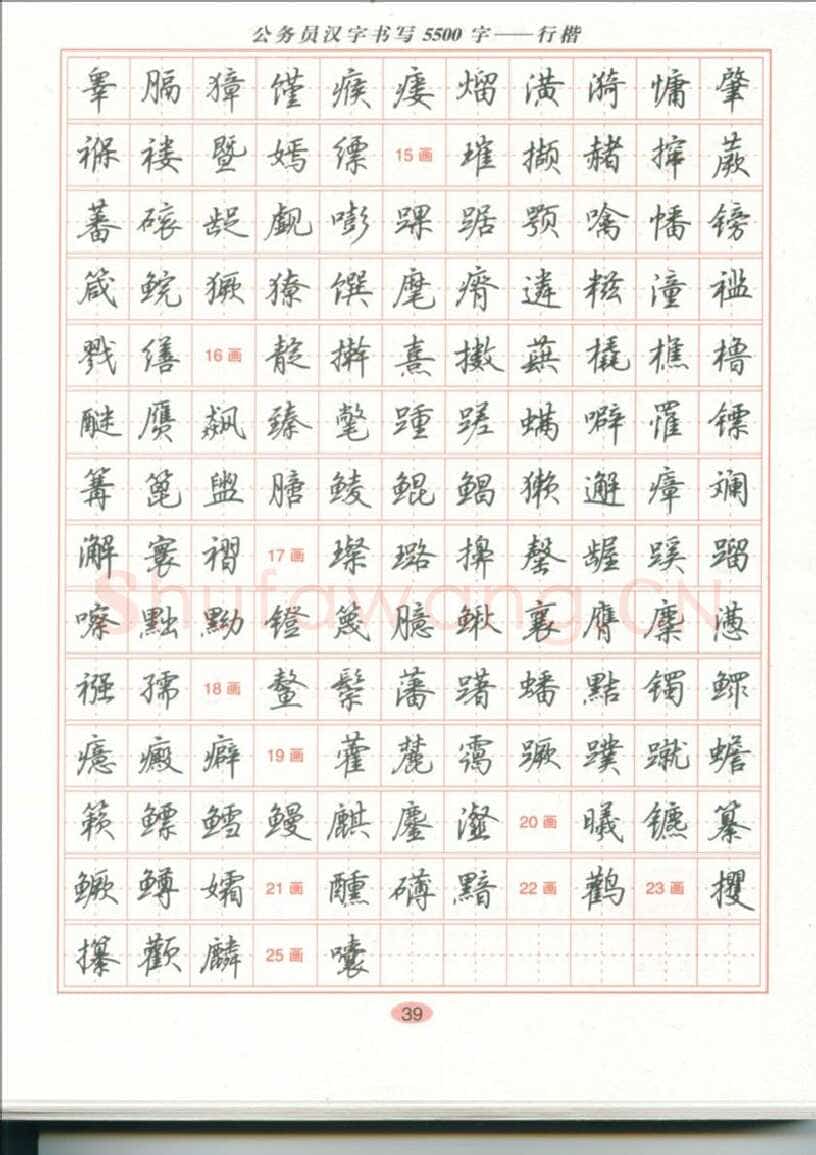 公务员汉字书写5500字——行楷
睾 膈 獐 馑 瘊 瘘 熘 潢 漪 慵 肇
褓 褛 暨 嫣 缥 15画 璀 撷 赭 撺 蕨
蕃 磙 龊 觑 嘭 踝 踞 颚 噙 幡 镑
箴 鲩 獗 獠 馔 麾 瘠 遴 糍 潼 褴
戮 缮 16画 靛 擀 熹 擞 蕻 橇 樵 橹
醚 赝 飙 臻 氅 踵 蹉 螨 噼 罹 镖
篝 篦 盥 膪 鲮 鲲 鲳 獭 邂 瘴 斓
澥 寰 褶 17画 璨 璐 擤 罄 龌 蹊 蹓
嚓 黜 黝 镫 篾 臆 鳅 襄 膺 麋 懑
襁 孺 18画 鳌 鬃 藩 躇 蟠 黠 镯 鳏
癔 癜 癖 19画 藿 麓 霭 蹶 蹼 蹴 蟾
籁 鳔 鳕 鳗 麒 鏖 瀣 20画 曦 镳 纂
鳜 鳟 孀 21画 醺 礴 黯 22画 鹳 23画 攫
攥 颧 麟 25画 囔
39
Shufawang.CN